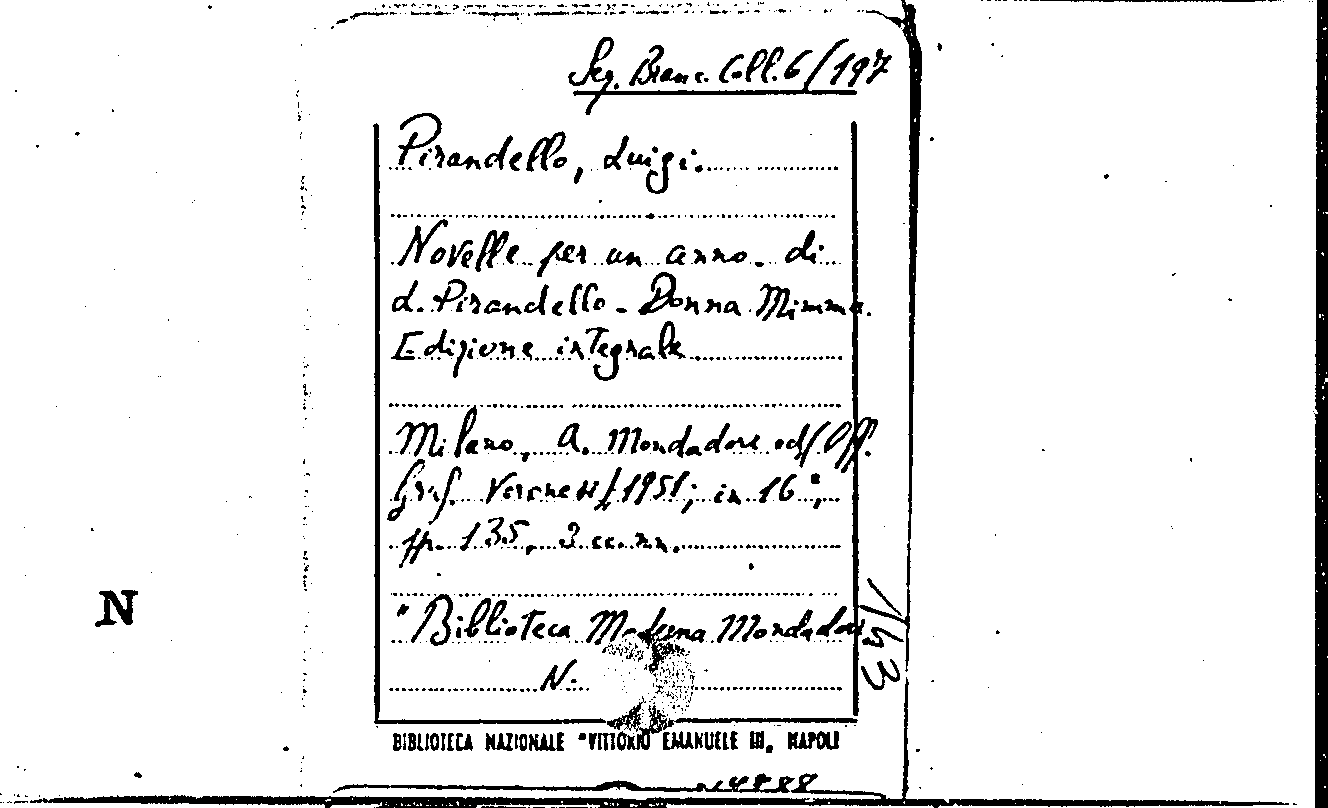 Seg. Branc. Coll. 6/197
Pirandello, Luigi.
Novelle per un anno. di
L. Pirandello - Donna Mimma.
Edizione integrale
Milano, A. Mondadori ed/Off.
Graf. Veronesi/, 1951; in 16°,
pp. 135, 3 cc. nn.
"Biblioteca Moderna Mondadori
N.
143
N
BIBLIOTECA NAZIONALE "VITTORIO EMANUELE III, NAPOLI